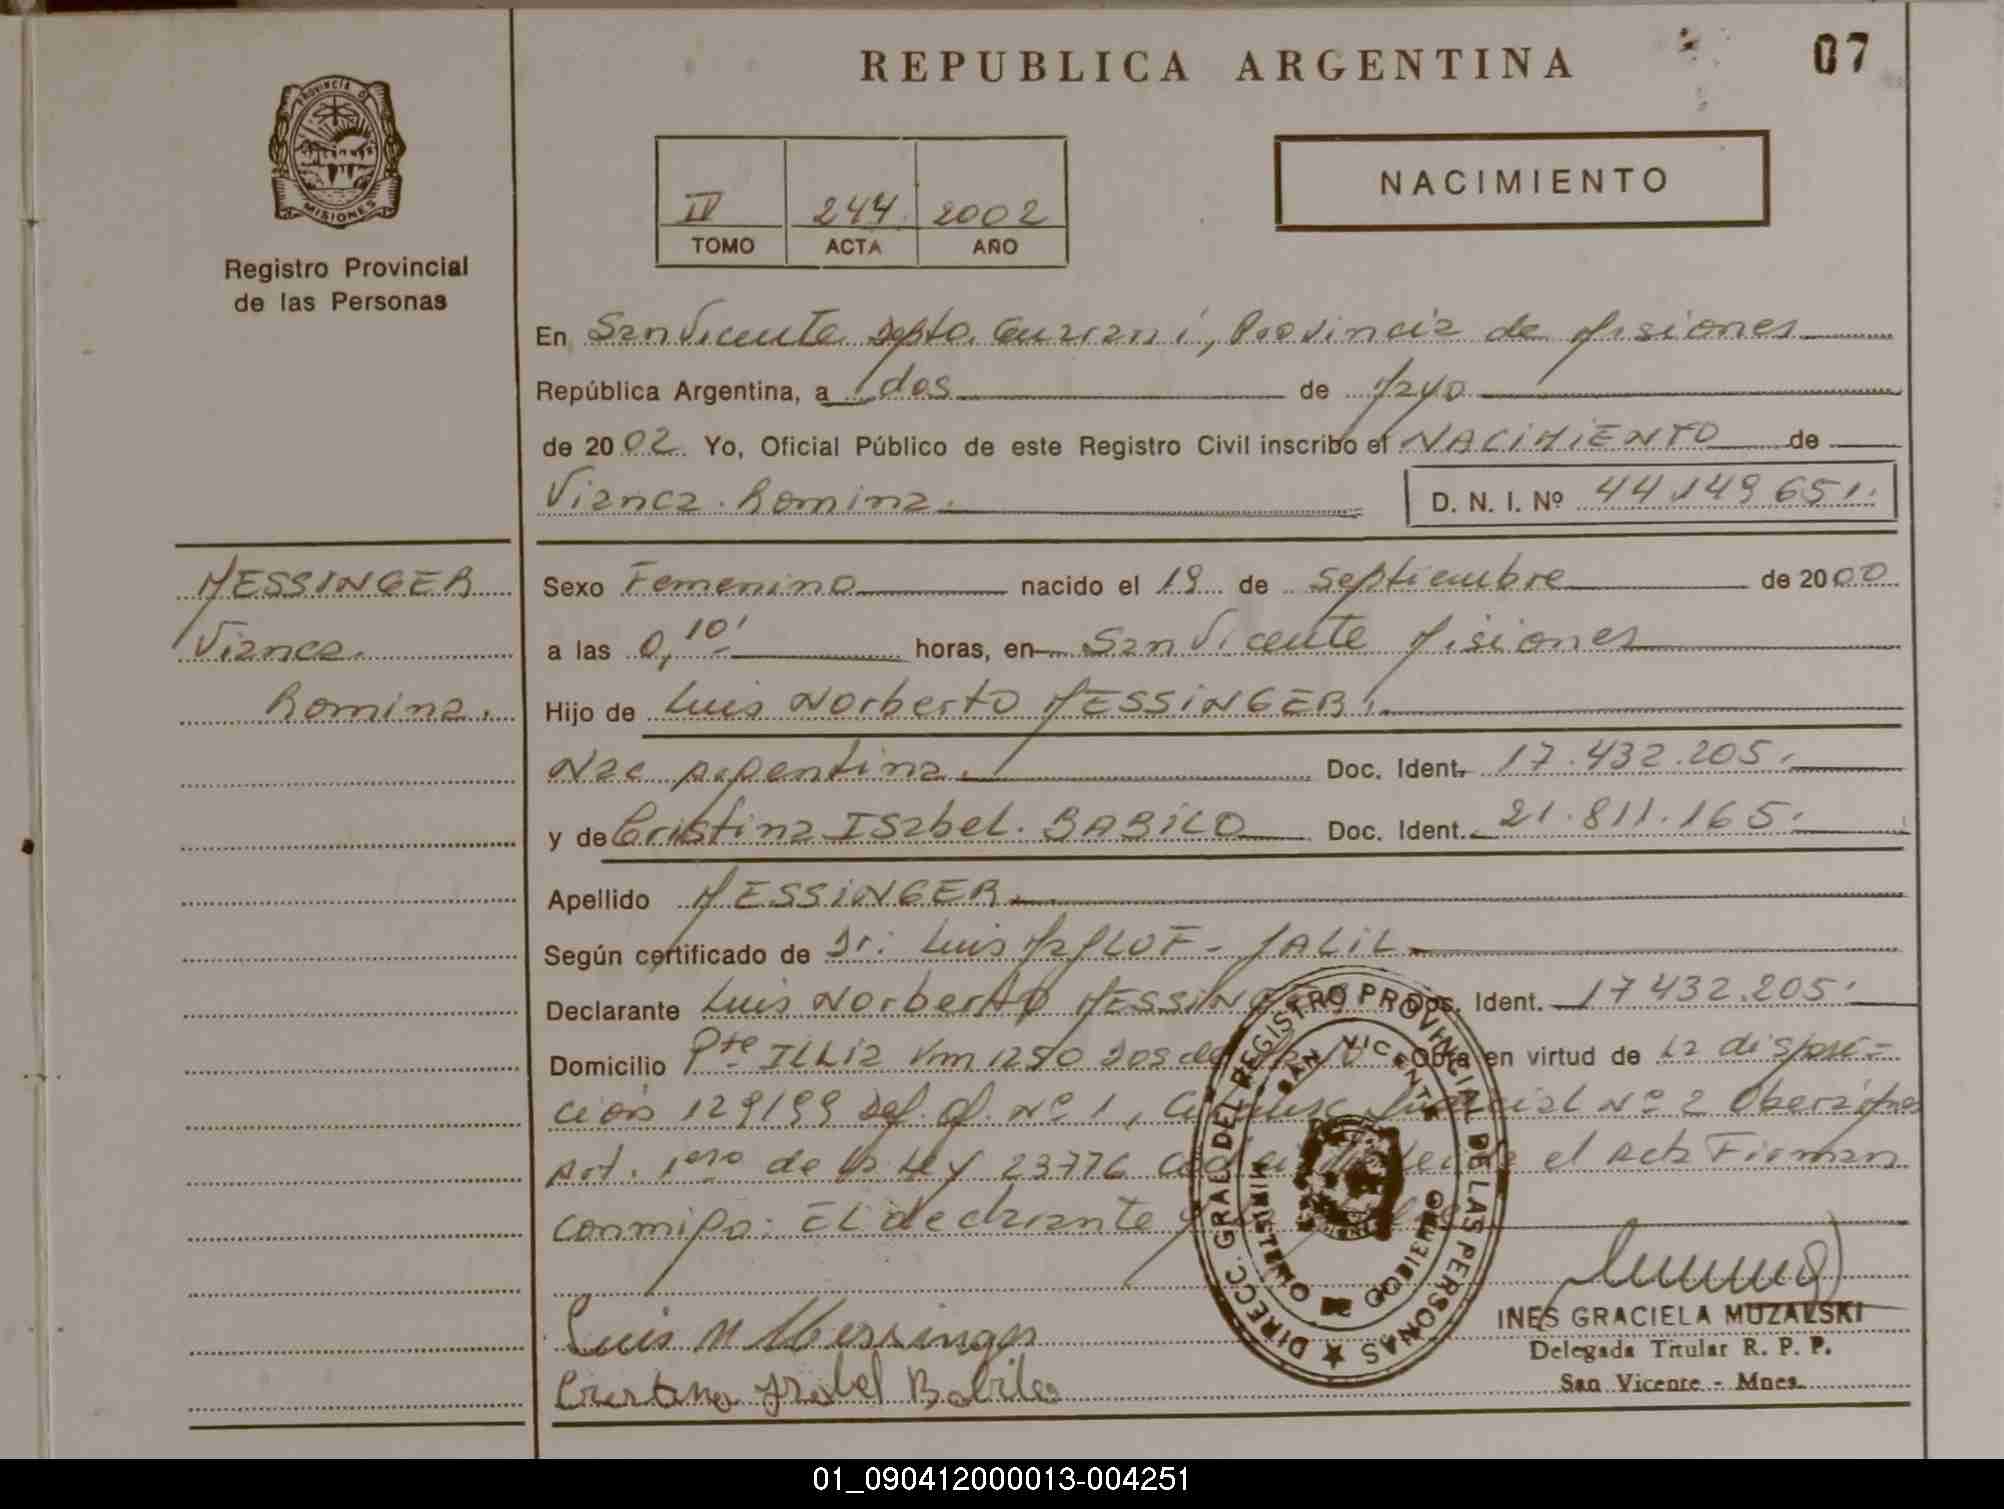 REPUBLICA ARGENTINA
07
PROVINCIA DE MISIONES
Registro Provincial
de las Personas
IV 244 2002
TOMO ACTA AÑO
NACIMIENTO
En San Vicente Depto. Guarani, Provincia de Misiones
República Argentina, a dos de Mayo
de 2002 Yo, Oficial Público de este Registro Civil inscribo el NACIMIENTO de
Vianca Romina.
D. N. I. Nº 44.149.651.
MESSINGER
Vianca
Romina.
Sexo Femenino nacido el 19 de septiembre de 2000
a las 0,10' horas, en San Vicente Misiones
Hijo de Luis Norberto MESSINGER.
Nac Argentina. Doc. Ident. 17.432.205.
y de Cristina Isabel BABILO Doc. Ident. 21.811.165.
Apellido MESSINGER
Según certificado de Dr. Luis JALIL
Declarante Luis Norberto MESSINGER Doc. Ident. 17432.205.
Domicilio Pte ILLia Km 1250 Obra en virtud de La disposi-
ción 129/99 Def. Of. Nº 1, Judicial Nº 2 Obera Mnes
Art. 1ero de la Ley 23776 el Acta Firman
conmigo: El declarante y
Luis N Messinger
Cristina Isabel Babilo
DIRECC. GRAL DEL REGISTRO PROVINCIAL DE LAS PERSONAS
SAN VICENTE
MINISTERIO DE GOBIERNO
INES GRACIELA MUZALSKI
Delegada Titular R. P. P.
San Vicente - Mnes.
01_090412000013-004251